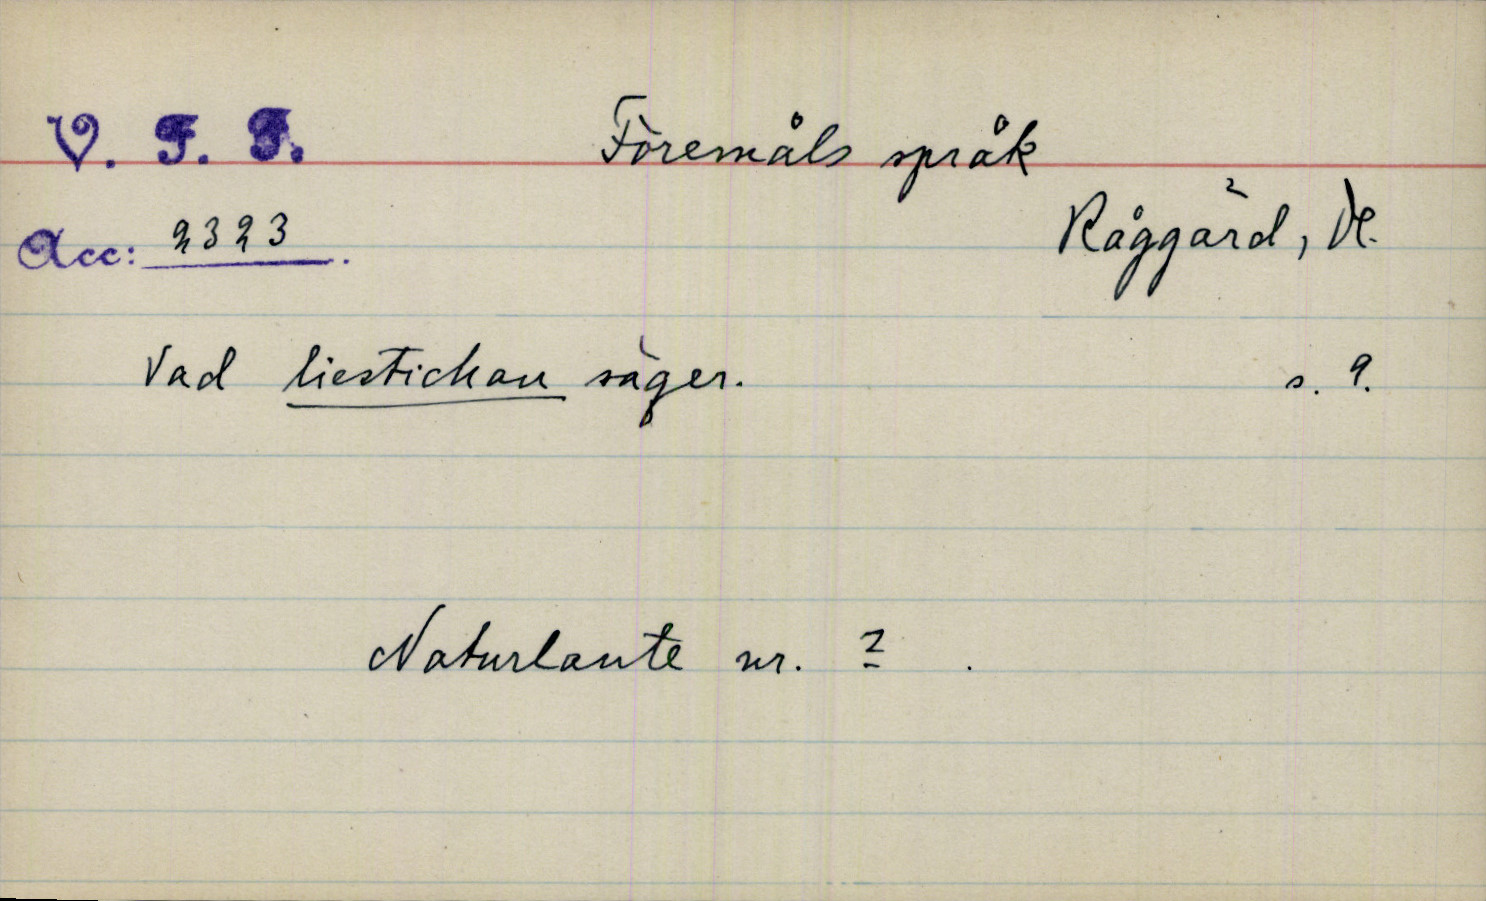 V. F. F. Föremåls språk
Acc: 2323. Råggärd, Dl.
Vad liestickan säger. s. 9.
Naturlaute nr. 2.